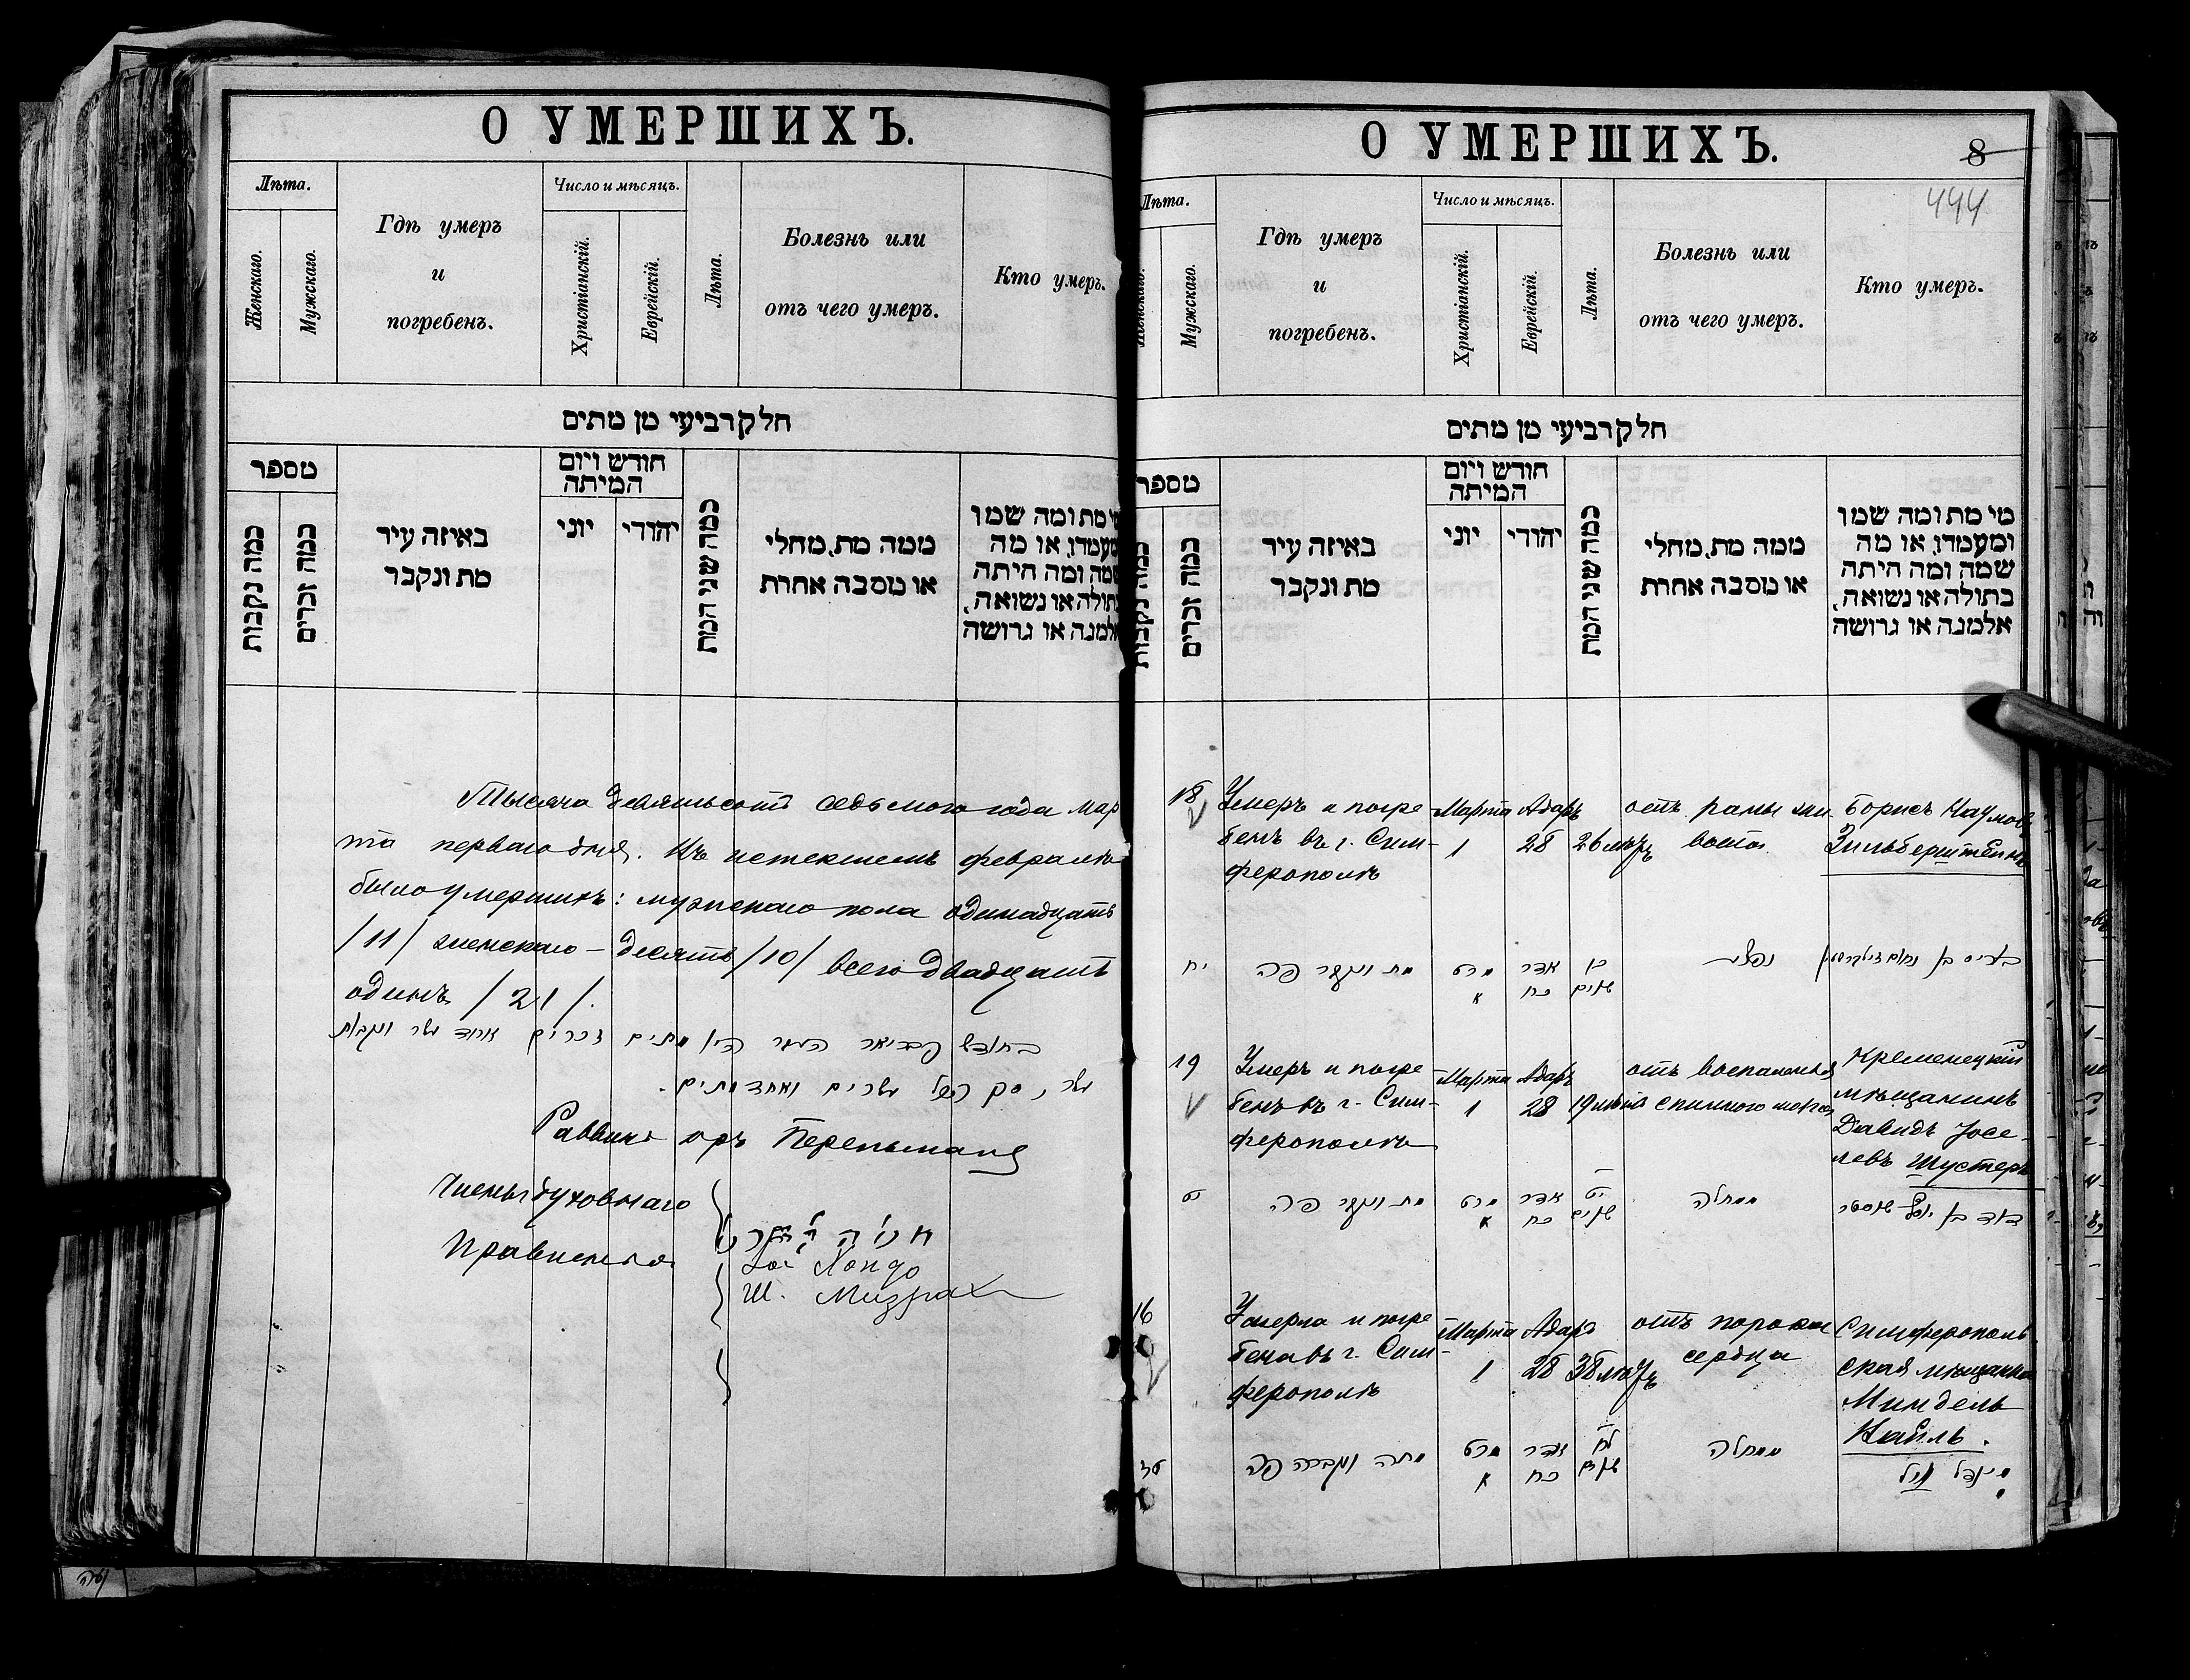 О УМЕРШИХЪ.
Лѣта.
Женскаго.
Мужскаго.
Гдѣ умеръ
и
погребенъ.
Число и мѣсяцъ.
Христіанскій.
Еврейскій.
Лѣта.
Болезнь или
отъ чего умеръ.
Кто умеръ.
חלק רביעי מן מתים
מספר
כמה נקבות
כמה זכרים
באיזה עיר
מת ונקבר
חודש ויום
המיתה
יוני
יהודי
כמה שני המת
ממה מת, מחלי
או מסבה אחרת
מי מת ומה שמו
ומעמדו, או מה
שמה ומה היתה
בתולה או נשואה,
אלמנה או גרושה
Тысяча девятьсотъ седьмого года мар
та перваго дня. Въ истекшемъ февралѣ
было умершихъ: мужскаго пола одинадцать
/11/ женскаго - десять /10/ всего двадцать
одинъ /21/.
בחודש פבריאר העבר היו מתים זכרים אחד עשר ונקבות
עשר, סך הכל עשרים ואחד מתים.
Раввинъ
Члены духовнаго
Правленія
Ш. Мизрах
О УМЕРШИХЪ.
8
444
Лѣта.
Женскаго.
Мужскаго.
Гдѣ умеръ
и
погребенъ.
Число и мѣсяцъ.
Христіанскій.
Еврейскій.
Лѣта.
Болезнь или
отъ чего умеръ.
Кто умеръ.
חלק רביעי מן מתים
מספר
כמה נקבות
כמה זכרים
באיזה עיר
מת ונקבר
חודש ויום
המיתה
יוני
יהודי
כמה שני המת
ממה מת, מחלי
או מסבה אחרת
מי מת ומה שמו
ומעמדו, או מה
שמה ומה היתה
בתולה או נשואה,
אלמנה או גרושה
18 Умеръ и погре Марта Адаръ отъ раны жи Борисъ Наумовъ
бенъ въ г. Сим- 1 28 26 лѣтъ вота Зильберштейнъ
ферополѣ
יח מת ונקבר פה מרט אדר כו
א כח שנים
19 Умеръ и погре Марта Адаръ отъ воспаленія Кременецкій
бенъ въ г. Сим- 1 28 19 лѣтъ спинного мозга мѣщанинъ
ферополѣ Давидъ Іосе-
левъ Шустеръ
יט מת ונקבר פה מרט אדר יט ממחלה דוד בן יוסף שוסטר
א כח שנים
16 Умерла и погре Марта Адаръ отъ порока Симферополь
бена въ г. Сим- 1 28 38 лѣтъ сердца ская мѣщанка
ферополѣ Миндель
Найль.
מתה ונקברה פה מרט אדר לח ממחלה
א כח שנים